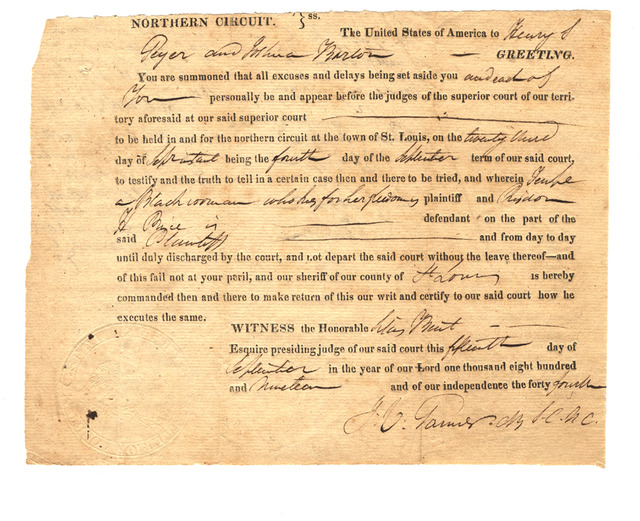 NORTHERN CIRCUIT. } ss.
The United States of America to Henry S
Geyer and Joshua Barton — GREETING.
You are summoned that all excuses and delays being set aside you and each of
You personally be and appear before the judges of the superior court of our terri-
tory aforesaid at our said superior court
to be held in and for the northern circuit at the town of St. Louis, on the twenty third
day of instant being the fourth day of the September term of our said court,
to testify and the truth to tell in a certain case then and there to be tried, and wherein Tempe
a Black woman who sues for her freedom is plaintiff and Risdon
H Price is defendant on the part of the
said Plaintiff and from day to day
until duly discharged by the court, and not depart the said court without the leave thereof—and
of this fail not at your peril, and our sheriff of our county of St Louis is hereby
commanded then and there to make return of this our writ and certify to our said court how he
executes the same.
WITNESS the Honorable Silas Bent
Esquire presiding judge of our said court this fifteenth day of
September in the year of our Lord one thousand eight hundred
and Nineteen and of our independence the forty fourth